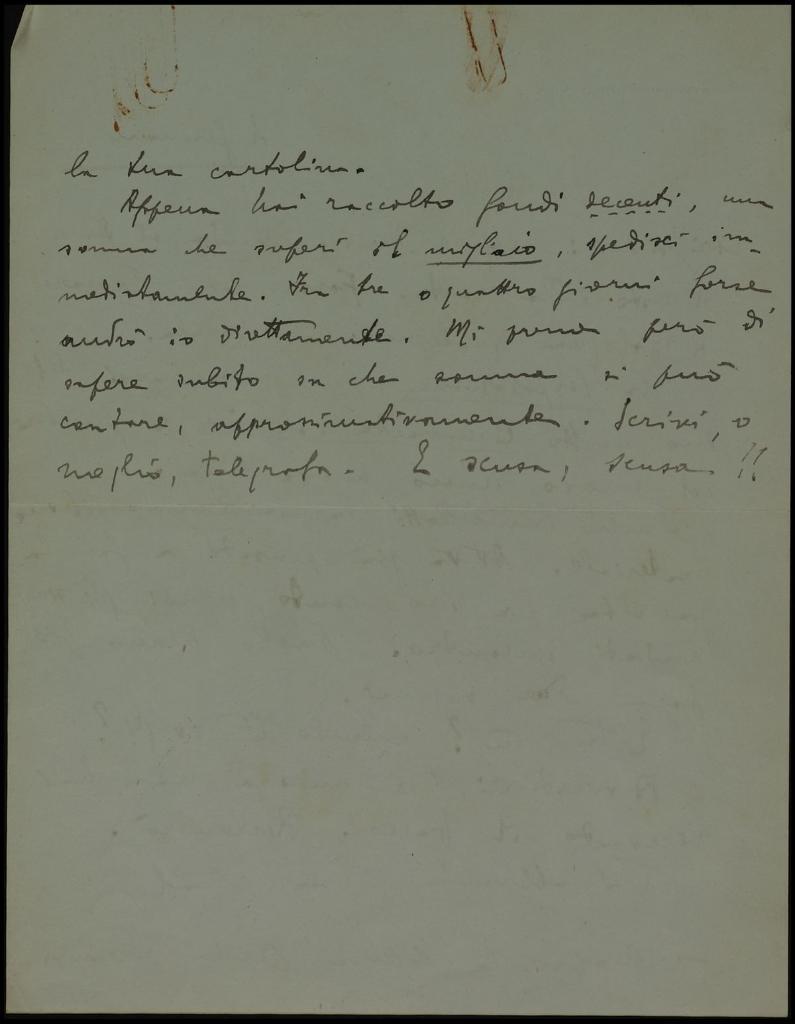 la tua cartolina.
Appena hai raccolto fondi decenti, una
somma che superi il migliaio, spedisci im-
mediatamente. Fra tre o quattro giorni forse
andrò io direttamente. Mi preme però di
sapere subito su che somma si può
contare, approssimativamente. Scrivi, o
meglio, telegrafa. E scusa, scusa!!